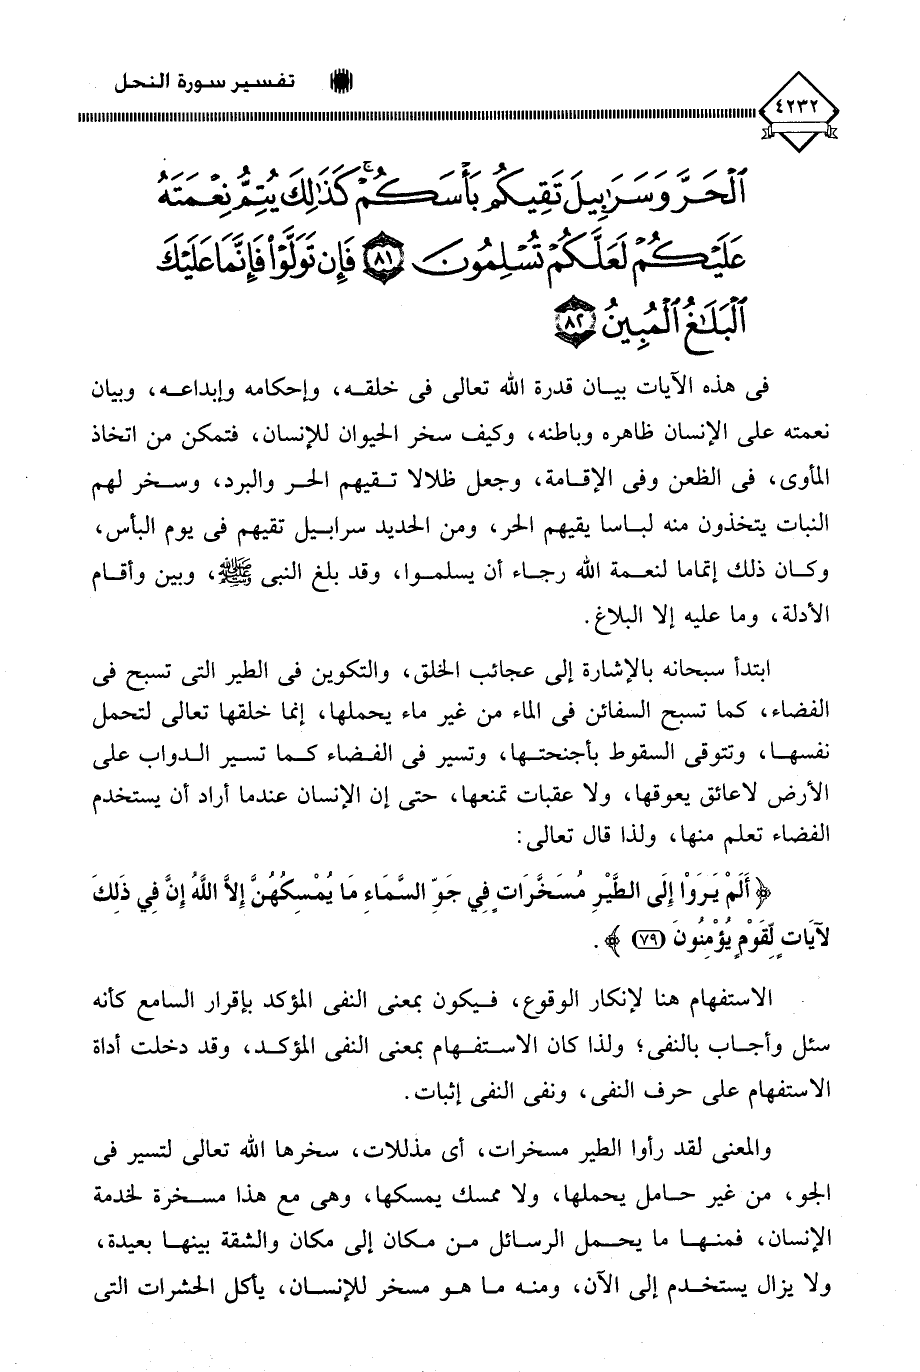 تفسير سورة النحل
٤٢٣٢
ٱلْحَرَّ وَسَرَٰبِيلَ تَقِيكُم بَأْسَكُمْ ۚ كَذَٰلِكَ يُتِمُّ نِعْمَتَهُۥ
عَلَيْكُمْ لَعَلَّكُمْ تُسْلِمُونَ ٨١ فَإِن تَوَلَّوْا۟ فَإِنَّمَا عَلَيْكَ
ٱلْبَلَٰغُ ٱلْمُبِينُ ٨٢
فى هذه الآيات بيان قدرة الله تعالى فى خلقه، وإحكامه وإبداعه، وبيان
نعمته على الإنسان ظاهره وباطنه، وكيف سخر الحيوان للإنسان، فتمكن من اتخاذ
المأوى، فى الظعن وفى الإقامة، وجعل ظلالا تقيهم الحر والبرد، وسخر لهم
النبات يتخذون منه لباسا يقيهم الحر، ومن الحديد سرابيل تقيهم فى يوم البأس،
وكان ذلك إتماما لنعمة الله رجاء أن يسلموا، وقد بلغ النبى ﷺ، وبين وأقام
الأدلة، وما عليه إلا البلاغ.
ابتدأ سبحانه بالإشارة إلى عجائب الخلق، والتكوين فى الطير التى تسبح فى
الفضاء، كما تسبح السفائن فى الماء من غير ماء يحملها، إنما خلقها تعالى لتحمل
نفسها، وتتوقى السقوط بأجنحتها، وتسير فى الفضاء كما تسير الدواب على
الأرض لاعائق يعوقها، ولا عقبات تمنعها، حتى إن الإنسان عندما أراد أن يستخدم
الفضاء تعلم منها، ولذا قال تعالى:
﴿أَلَمْ يَرَوْا إِلَى الطَّيْرِ مُسَخَّرَاتٍ فِي جَوِّ السَّمَاءِ مَا يُمْسِكُهُنَّ إِلاَّ اللَّهُ إِنَّ فِي ذَلِكَ
لآيَاتٍ لِّقَوْمٍ يُؤْمِنُونَ (٧٩)﴾.
الاستفهام هنا لإنكار الوقوع، فيكون بمعنى النفى المؤكد بإقرار السامع كأنه
سئل وأجاب بالنفى؛ ولذا كان الاستفهام بمعنى النفى المؤكد، وقد دخلت أداة
الاستفهام على حرف النفى، ونفى النفى إثبات.
والمعنى لقد رأوا الطير مسخرات، أى مذللات، سخرها الله تعالى لتسير فى
الجو، من غير حامل يحملها، ولا ممسك يمسكها، وهى مع هذا مسخرة لخدمة
الإنسان، فمنها ما يحمل الرسائل من مكان إلى مكان والشقة بينها بعيدة،
ولا يزال يستخدم إلى الآن، ومنه ما هو مسخر للإنسان، يأكل الحشرات التى